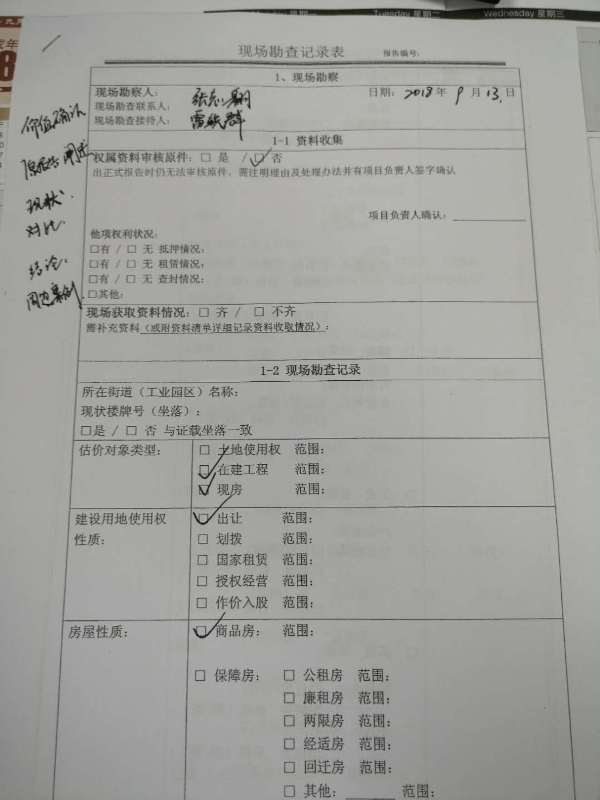 Tuesday 星期二
Wednesday 星期三
现场勘查记录表 报告编号:
1、现场勘察
现场勘察人:
日期: 2018 年 9 月 13 日
现场勘查联系人:
现场勘查接待人:
1-1 资料收集
权属资料审核原件: □ 是 / □ 否
出正式报告时仍无法审核原件,需注明理由及处理办法并有项目负责人签字确认
项目负责人确认:
他项权利状况:
□有 / □ 无 抵押情况:
□有 / □ 无 租赁情况:
□有 / □ 无 查封情况:
□其他:
现场获取资料情况: □ 齐 / □ 不齐
需补充资料(或附资料清单详细记录资料收取情况):
1-2 现场勘查记录
所在街道(工业园区)名称:
现状楼牌号(坐落):
□是 / □ 否 与证载坐落一致
估价对象类型: □ 土地使用权 范围:
□ 在建工程 范围:
□ 现房 范围:
建设用地使用权性质: □ 出让 范围:
□ 划拨 范围:
□ 国家租赁 范围:
□ 授权经营 范围:
□ 作价入股 范围:
房屋性质: □ 商品房: 范围:
□ 保障房: □ 公租房 范围:
□ 廉租房 范围:
□ 两限房 范围:
□ 经适房 范围:
□ 回迁房 范围:
□ 其他: 范围:
价值确认
现状.
对比.
结论.
周边案例.